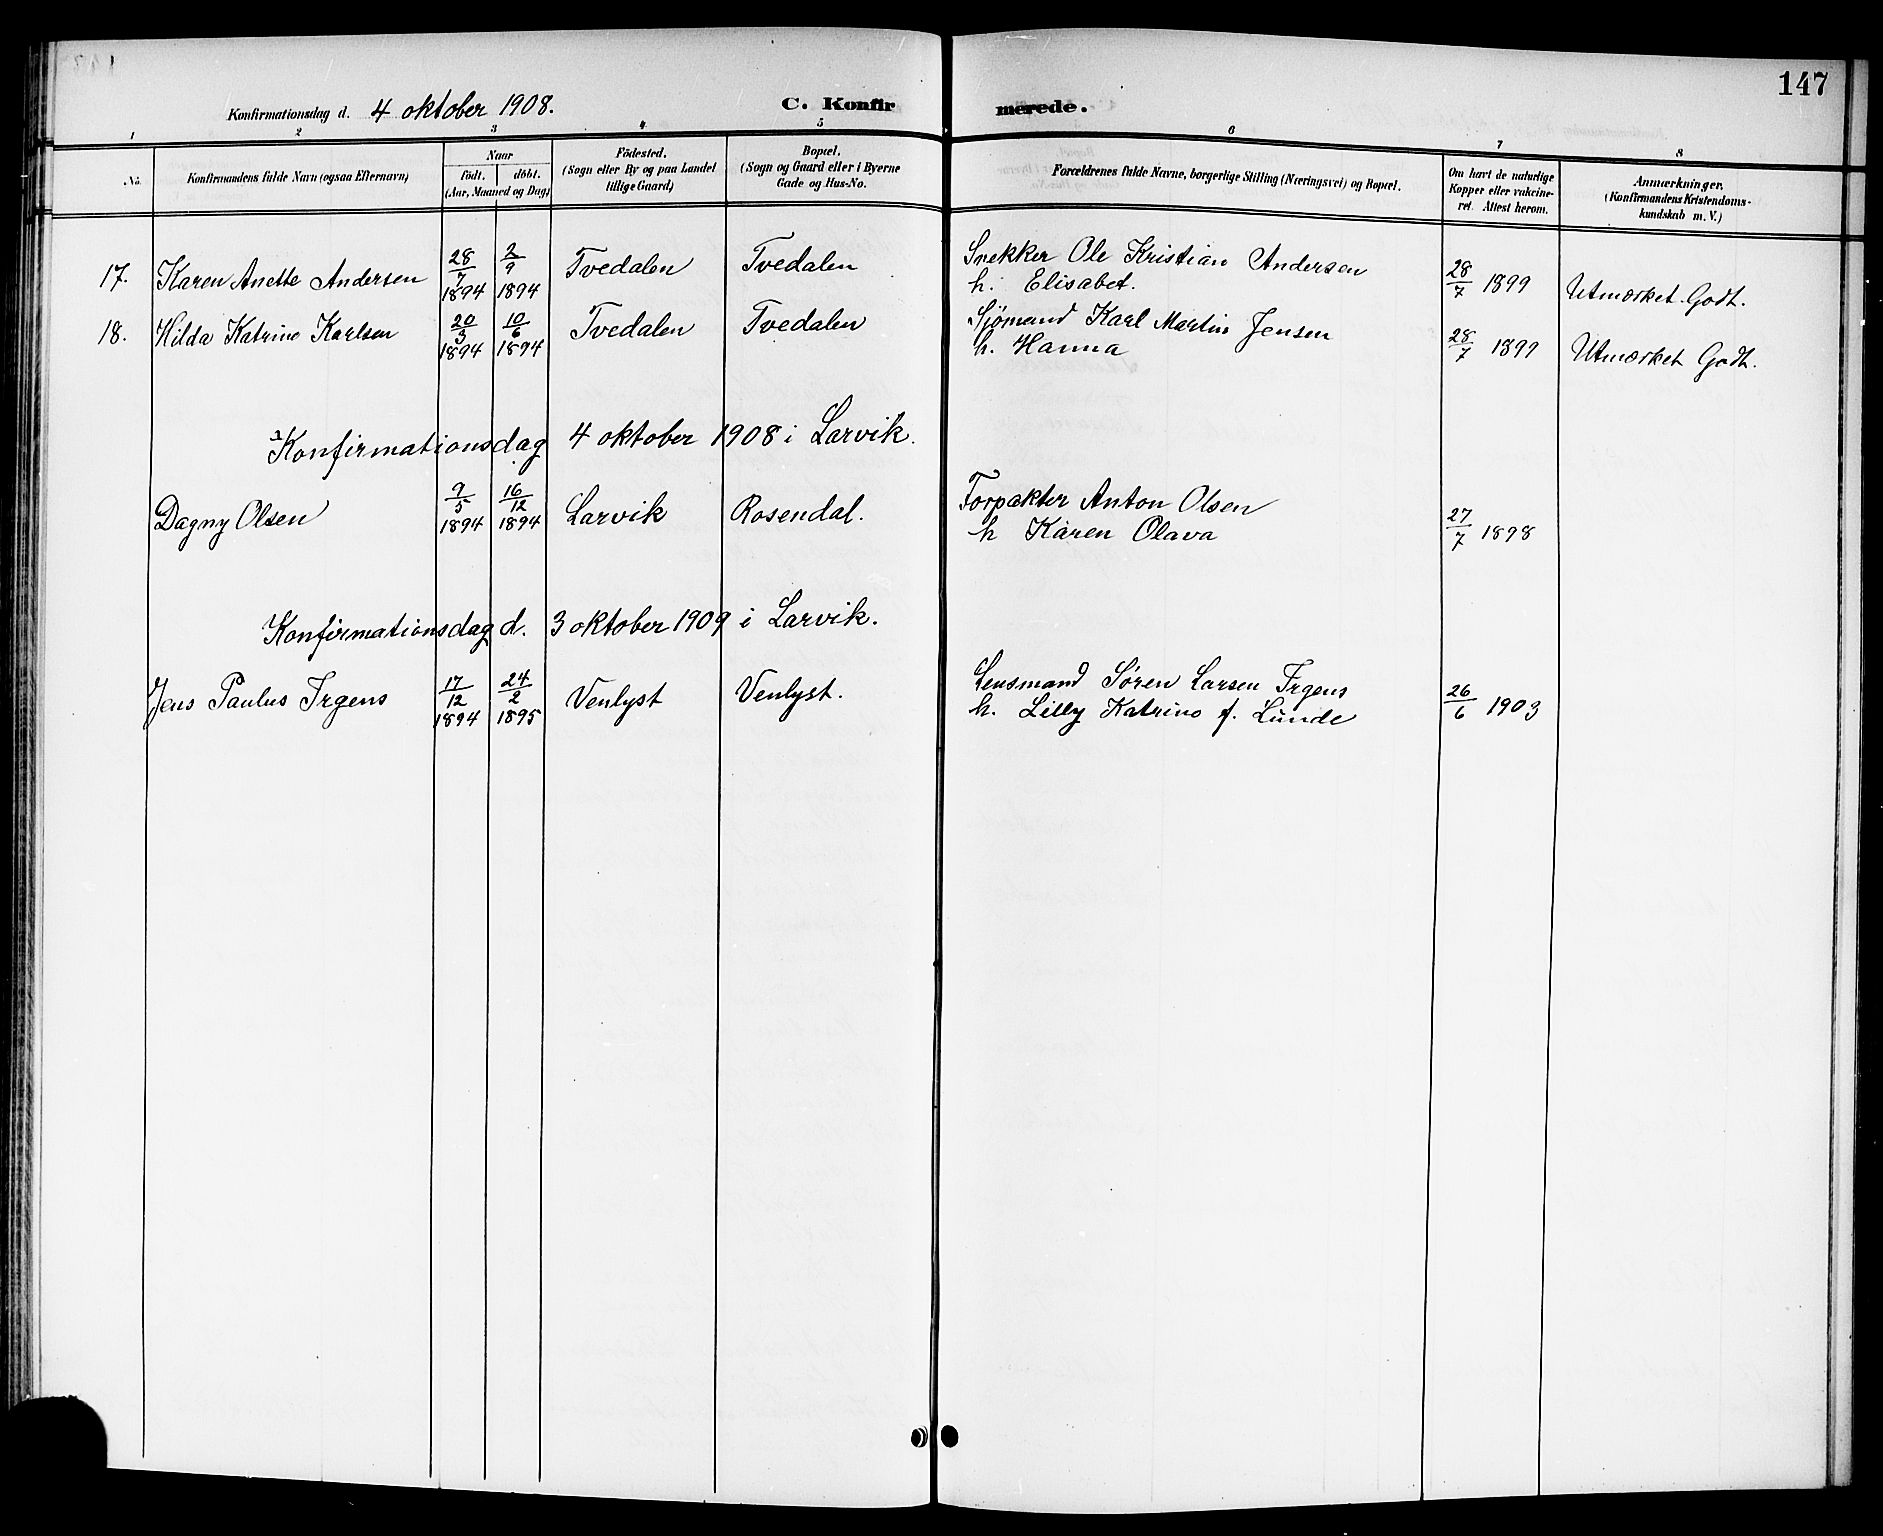 147
Konfirmationsdag d. 4 oktober 1908.
C. Konfirmerede.
1 2 3 4 5 6 7 8
No.
Konfirmandens fulde Navn (ogsaa Efternavn)
Naar
födt. döbt.
(Aar, Maaned og Dag)
Födested.
(Sogn eller By og paa Landet
tillige Gaard)
Bopæl.
(Sogn og Gaard eller i Byerne
Gade og Hus-No.
Forældrenes fulde Navne, borgerlige Stilling (Næringsvei) og Bopæl.
Om havt de naturlige
Kopper eller vakcine-
ret. Attest herom.
Anmærkninger.
(Konfirmandens Kristendoms-
kundskab m. V.)
17. Karen Anette Andersen 28/7 1894 2/9 1894 Tvedalen Tvedalen Snekker Ole Kristian Andersen
h. Elisabet. 28/7 1899 Utmærket Godt.
18. Hilda Katrine Karlsen 20/3 1894 10/6 1894 Tvedalen Tvedalen Sjömand Karl Martin Jensen
h. Hanna 28/7 1899 Utmærket Godt.
Konfirmationsdag 4 oktober 1908 i Larvik.
Dagny Olsen 9/5 1894 16/12 1894 Larvik Rosendal. Forpakter Anton Olsen
h Karen Olava 27/7 1898
Konfirmationsdag d. 3 oktober 1909 i Larvik.
Jens Paulus Irgens 17/12 1894 24/2 1895 Venlyst Venlyst. Lensmand Søren Larsen Irgens
h. Lilly Katrine f. Lunde 26/6 1903